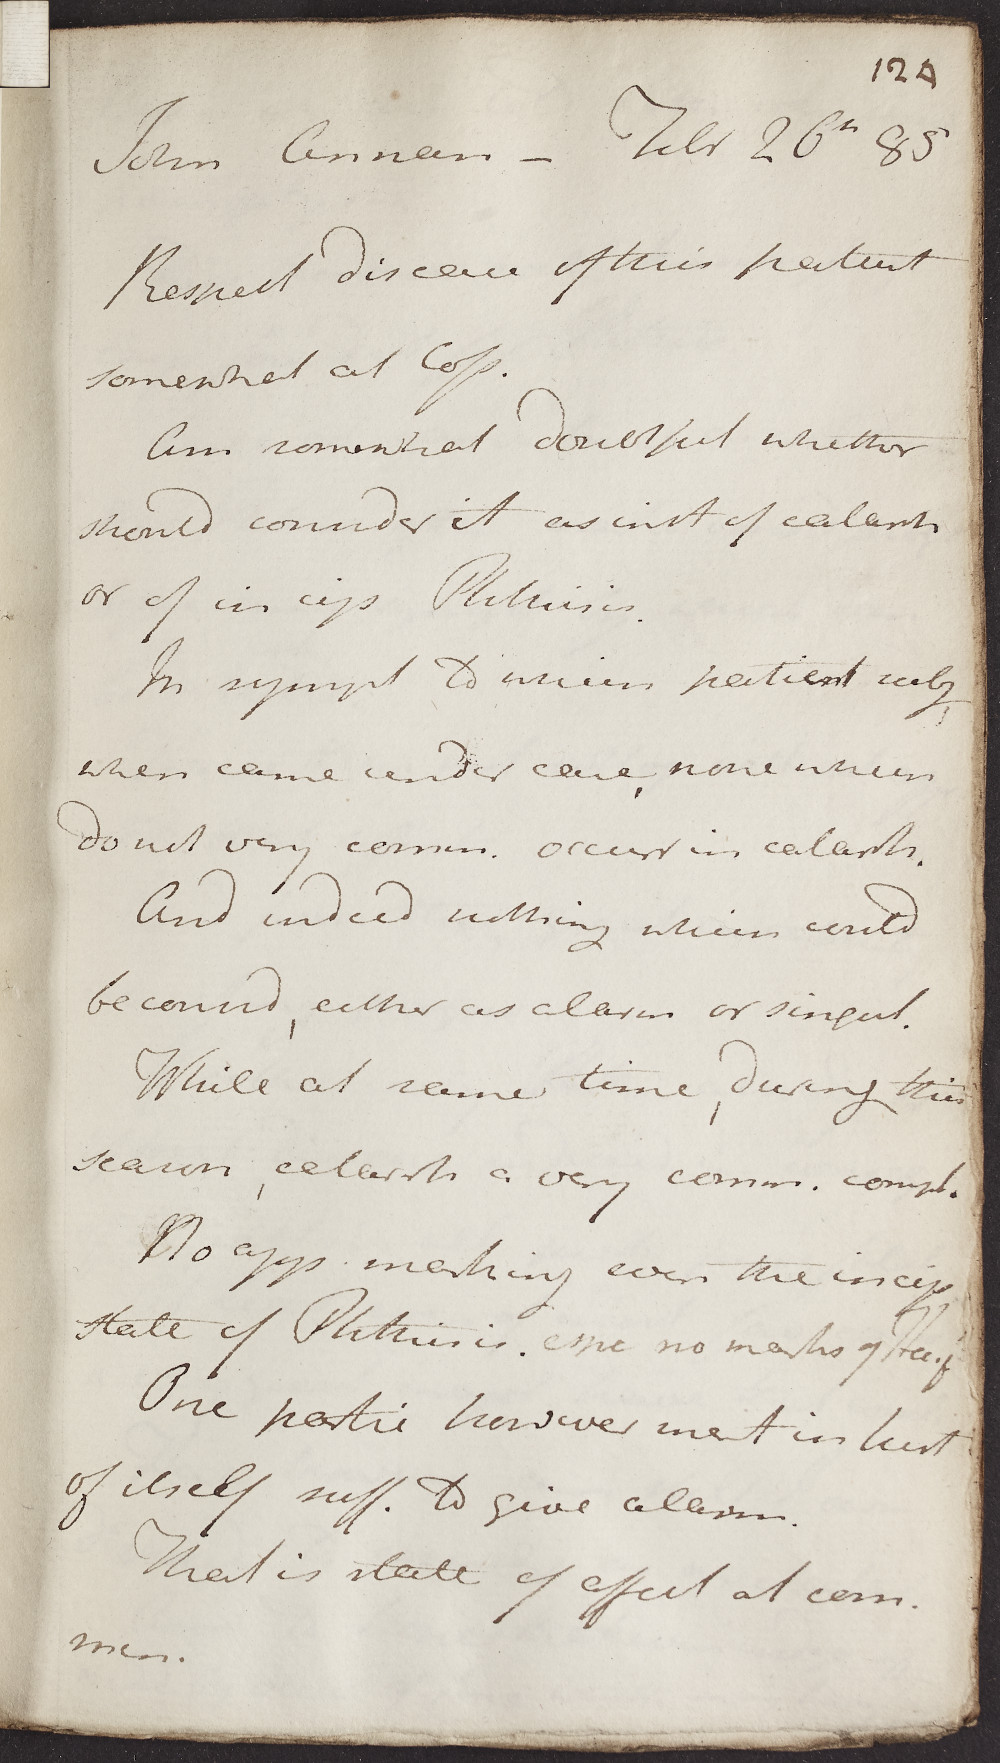 12A
John Annan - Febr 26th 85
Respect disease of this patient
somewhat at loss.
Am somewhat doubtful whether
should consider it as inst of catarrh
or of incip Phthisis.
In sympt to which patient subj,
when came under care, none which
do not very comm. occurr in catarrh.
And indeed nothing which could
be consid, either as alarm or singul.
While at same time, during this
season, catarrh a very comm. compl.
No app. marking even the incip
state of Phthisis. espe no marks of
One partic however ment in hist
of itself suff. to give alarm.
That is state of affect at com.
men.